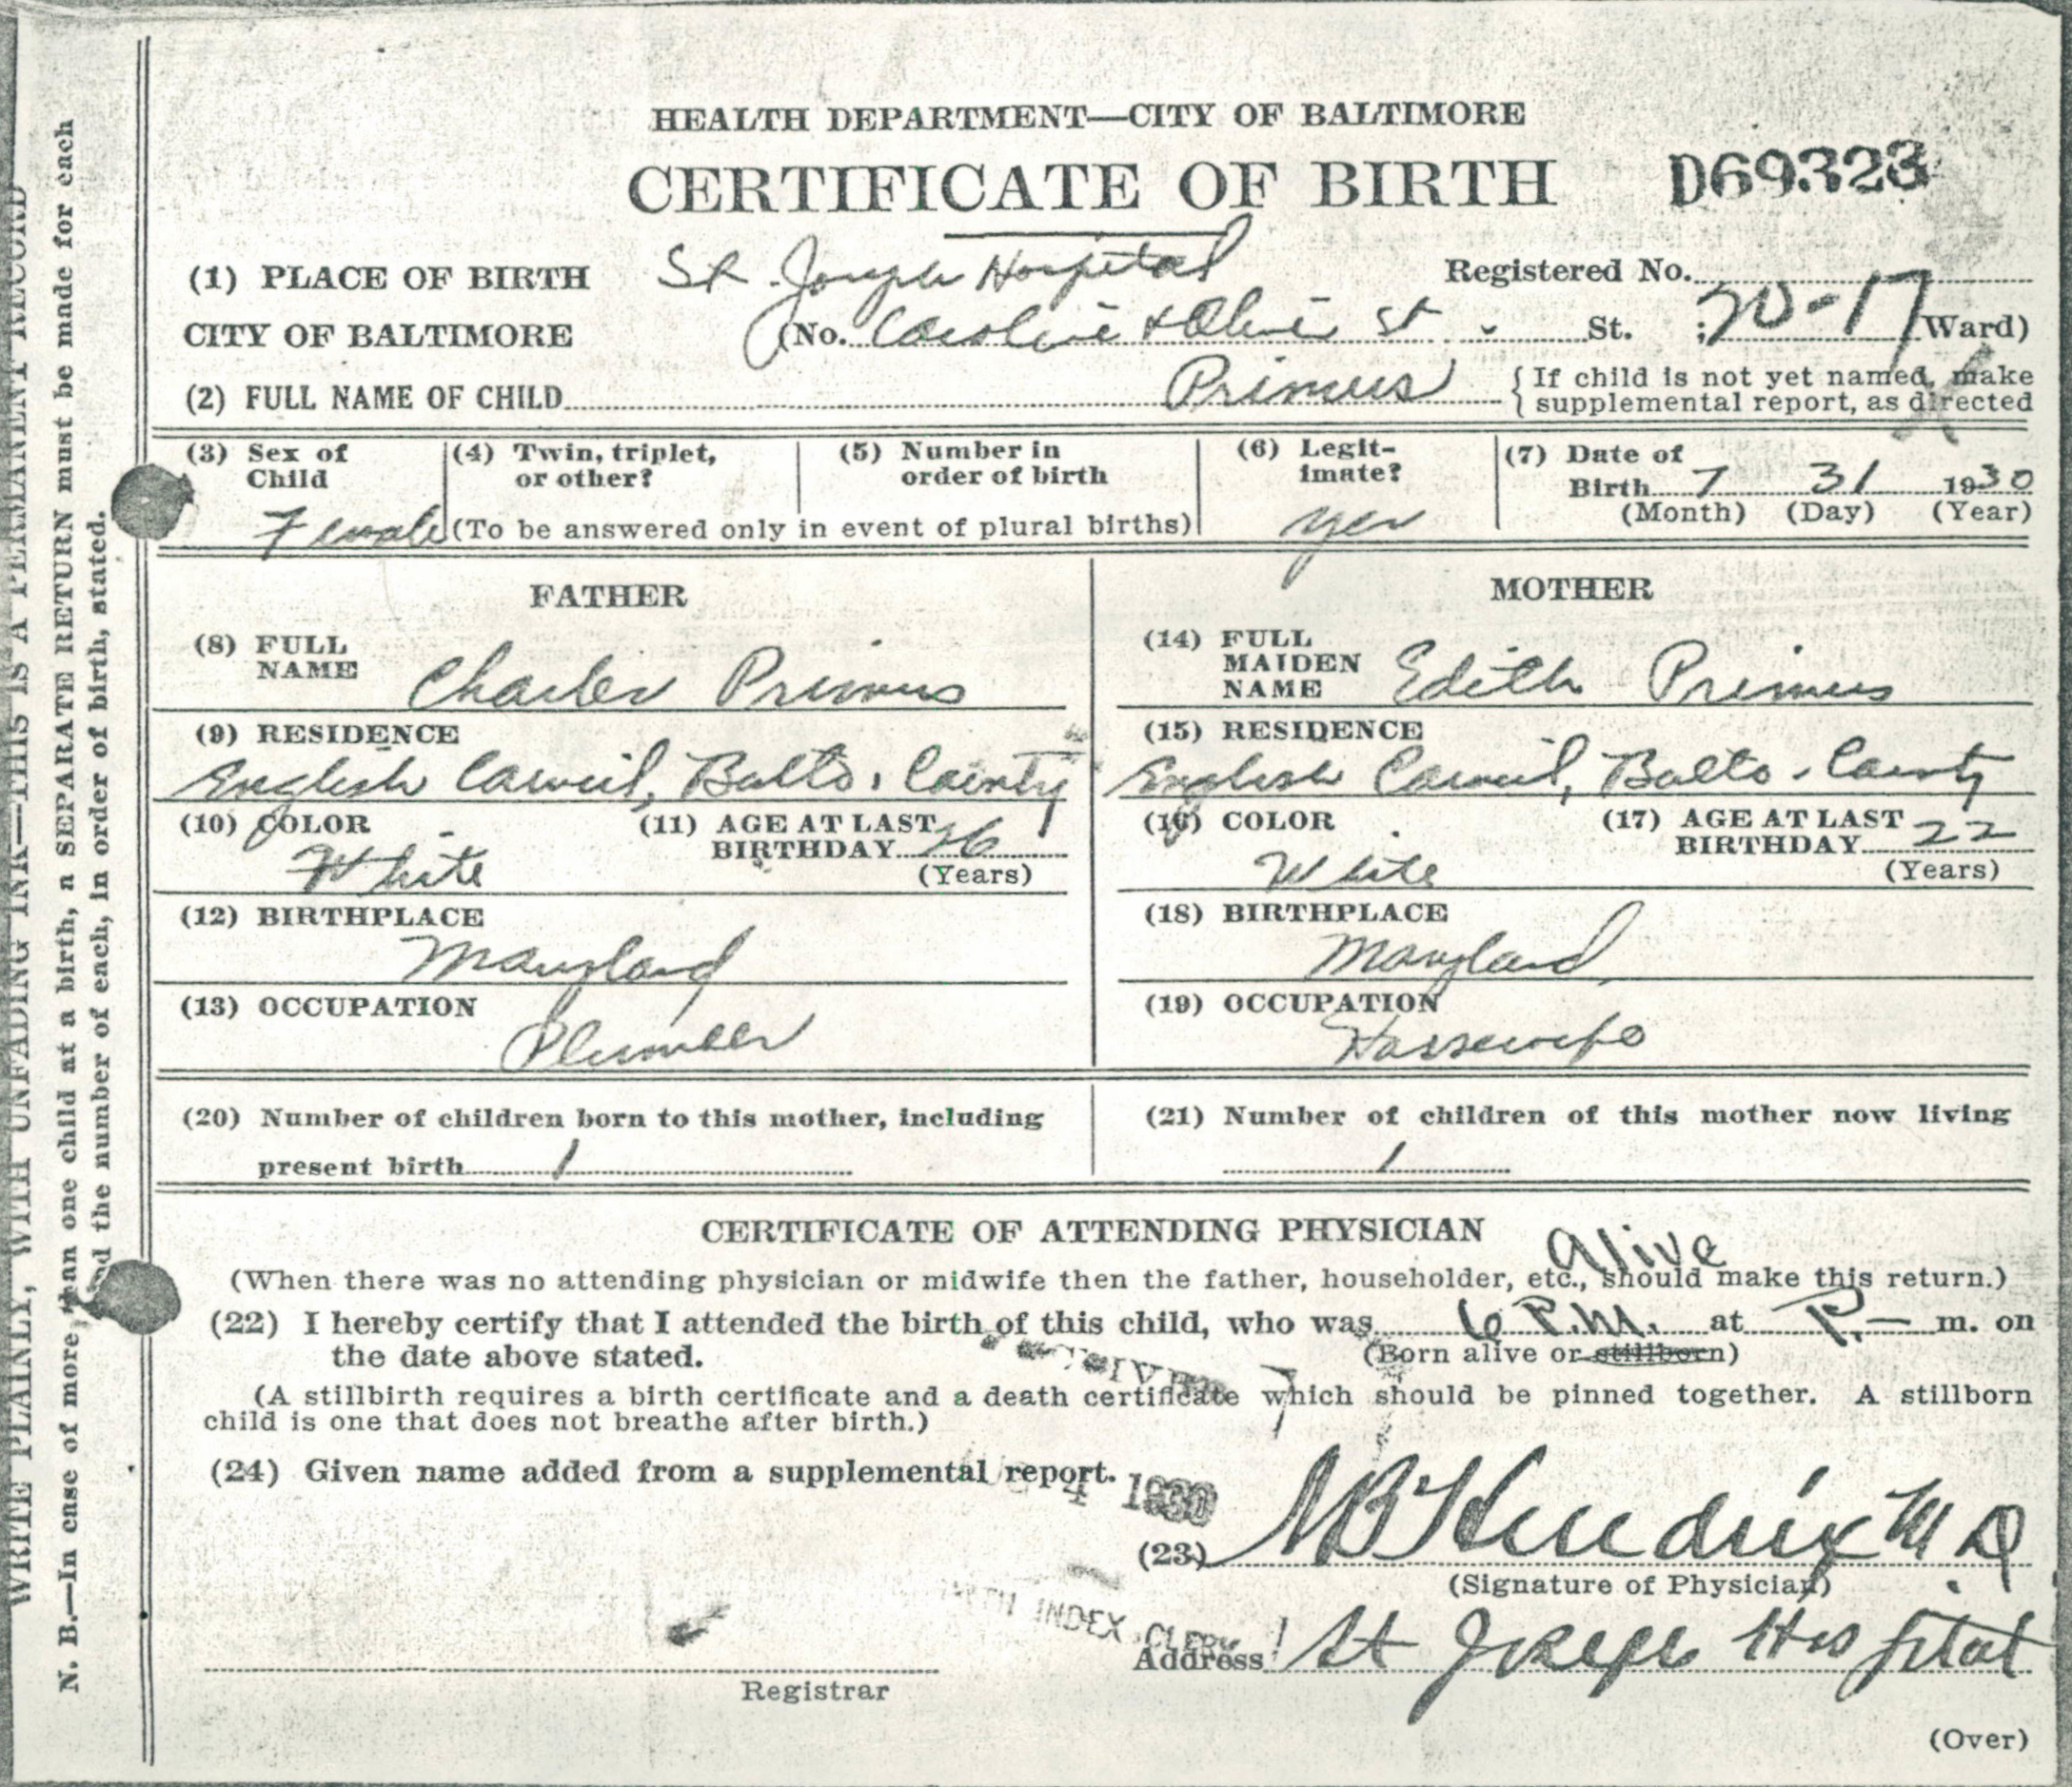 HEALTH DEPARTMENT—CITY OF BALTIMORE
CERTIFICATE OF BIRTH D69323
(1) PLACE OF BIRTH St. Joseph Hospital Registered No.
CITY OF BALTIMORE (No. Caroline & Oliver St St. ; Ward)
(2) FULL NAME OF CHILD Primus { If child is not yet named, make
supplemental report, as directed
(3) Sex of Child Female
(4) Twin, triplet, or other?
(5) Number in order of birth
(To be answered only in event of plural births)
(6) Legit-
imate? yes
(7) Date of
Birth 7 31 1930
(Month) (Day) (Year)
FATHER
(8) FULL NAME Charles Primus
(9) RESIDENCE
English Consul, Balto. County
(10) COLOR White
(11) AGE AT LAST BIRTHDAY 26 (Years)
(12) BIRTHPLACE
Maryland
(13) OCCUPATION
Plumber
MOTHER
(14) FULL MAIDEN NAME Edith Primus
(15) RESIDENCE
English Consul, Balto. County
(16) COLOR White
(17) AGE AT LAST BIRTHDAY 22 (Years)
(18) BIRTHPLACE
Maryland
(19) OCCUPATION
Housewife
(20) Number of children born to this mother, including
present birth 1
(21) Number of children of this mother now living
1
CERTIFICATE OF ATTENDING PHYSICIAN
(When there was no attending physician or midwife then the father, householder, etc., should make this return.)
Alive
(22) I hereby certify that I attended the birth of this child, who was 6 P.M. at P.— m. on
the date above stated. (Born alive or stillborn)
(A stillbirth requires a birth certificate and a death certificate which should be pinned together. A stillborn
child is one that does not breathe after birth.)
(24) Given name added from a supplemental report.
4 1930
(23) M B Hendrix M.D.
(Signature of Physician)
INDEX CLERK
Address St Joseph Hospital
Registrar
(Over)
WRITE PLAINLY, WITH UNFADING INK—THIS IS A PERMANENT RECORD
N. B.—In case of more than one child at a birth, a SEPARATE RETURN must be made for each
and the number of each, in order of birth, stated.